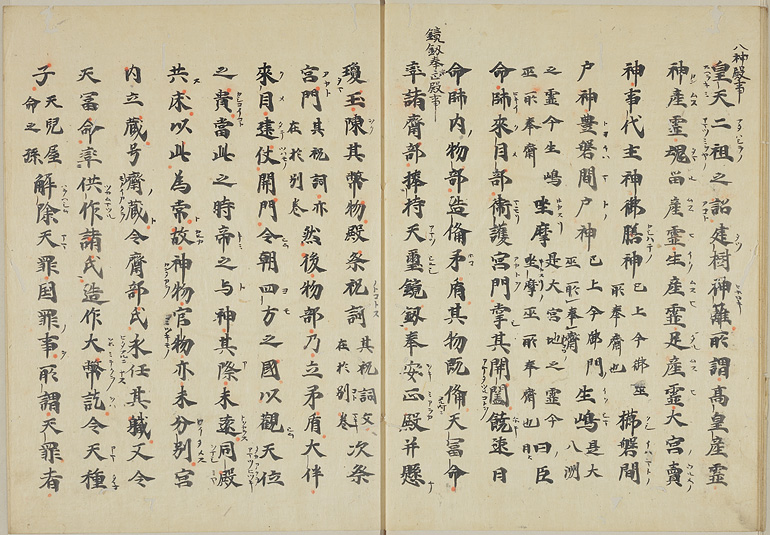 八神殿事
皇天二祖之詔建樹神籬所謂高皇産霊
神産霊魂留産霊生産霊足産霊大宮賣
神事代主神御膳神 已上今御巫所奉齋也 櫛磐間
戸神豊磐間戸神 已上今御門巫所奉齋 生嶋 是大八洲
之霊今生嶋巫所奉齋 坐摩 是大宮地之霊今坐摩巫所奉齋也 日臣
命帥來目部衛護宮門掌其開闔饒速日
鏡劔奉安正殿事
命帥内物部造備矛盾其物既備天冨命
率諸齋部捧持天璽鏡劔奉安正殿并懸
瓊玉陳其幣物殿祭祝詞 其祝詞文在於別巻 次祭
宮門 其祝詞亦在於別巻 然後物部乃立矛盾大伴
來目建仗開門令朝四方之國以觀天位
之貴當此之時帝之与神其際未遠同殿
共床以此為常故神物官物亦未分別宮
内立蔵号齋蔵令齋部氏永任其職又令
天冨命率供作諸氏造作大幣訖令天種
子 天兒屋命之孫 解除天罪国罪事所謂天罪者